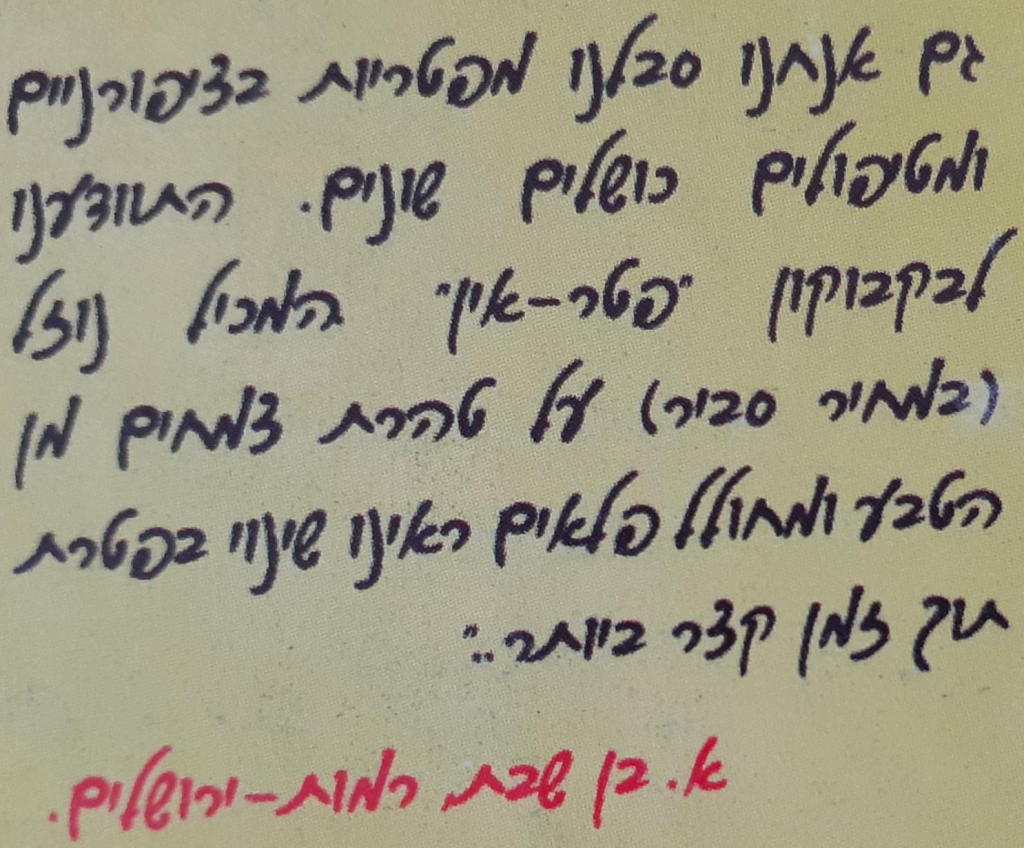 גם אנחנו סבלנו מפטריות בציפורניים
ומטיפולים כושלים שונים. התוודענו
לבקבוקון "פטר-אין" המכיל נוזל
(במחיר סביר) על טהרת צמחים מן
הטבע ומחולל פלאים ראינו שינוי בפטרת
תוך זמן קצר ביותר.."
א. בן שבת רמות-ירושלים.